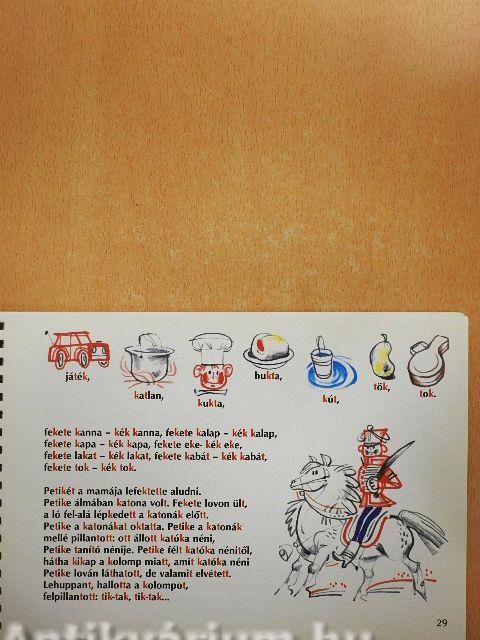 játék,
katlan,
kukta,
bukta,
kút,
tök,
tok.
fekete kanna – kék kanna, fekete kalap – kék kalap,
fekete kapa – kék kapa, fekete eke- kék eke,
fekete lakat – kék lakat, fekete kabát – kék kabát,
fekete tok – kék tok.
Petikét a mamája lefektette aludni.
Petike álmában katona volt. Fekete lovon ült,
a ló fel-alá lépkedett a katonák előtt.
Petike a katonákat oktatta. Petike a katonák
mellé pillantott: ott állott katóka néni,
Petike tanító nénije. Petike félt katóka nénitől,
hátha kikap a kolomp miatt, amit katóka néni
Petike lován láthatott, de valamit elvétett.
Lehuppant, hallotta a kolompot,
felpillantott: tik-tak, tik-tak...
29
Antikvárium.hu